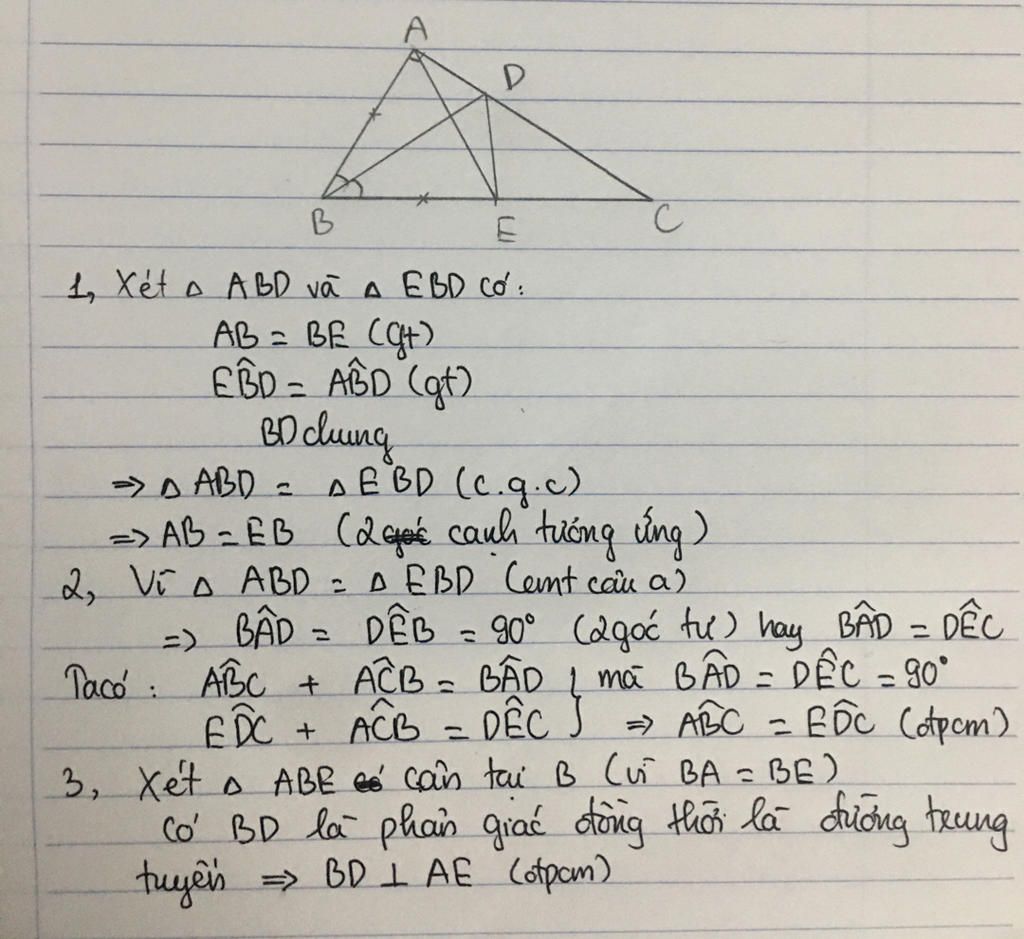 A
D
B
E
C
1, Xét △ ABD và △ EBD có:
AB = BE (gt)
EB̂D = AB̂D (gt)
BD chung
⇒ △ ABD = △ EBD (c.g.c)
⇒ AB = EB (2 góc cạnh tướng ứng)
2, Vì △ ABD = △ EBD (cmt câu a)
⇒ BÂD = DÊB = 90° (2 góc tư) hay BÂD = DÊC
Ta có : AB̂C + AĈB = BÂD } mà BÂD = DÊC = 90°
ED̂C + AĈB = DÊC } ⇒ AB̂C = ED̂C (đpcm)
3, Xét △ ABE có cân tại B (vì BA = BE)
có BD là phân giác đồng thời là đường trung
tuyến ⇒ BD ⊥ AE (đpcm)